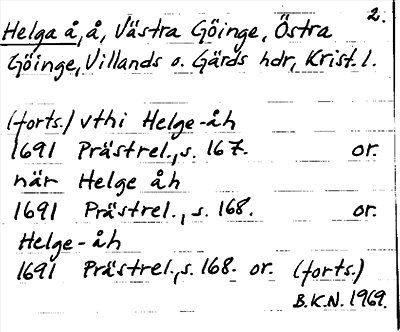 2.
Helga å, å, Västra Göinge, Östra
Göinge, Villands o. Gärds hdr, Krist. l.
(forts.) vthi Helge-åh
1691 Prästrel., s. 167. or.
när Helge åh
1691 Prästrel., s. 168. or.
Helge-åh
1691 Prästrel., s. 168. or. (forts.)
B.K.N. 1969.